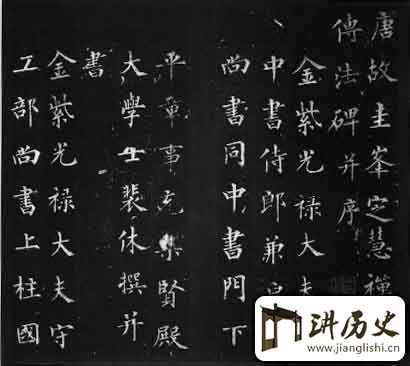 唐故圭峯定慧禪
傳法碑并序
金紫光禄大夫
中書侍郎兼
尚書同中書門下
平章事充集賢殿
大學士裴休撰并
書
金紫光禄大夫守
工部尚書上柱國
讲历史
www.jianglishi.cn